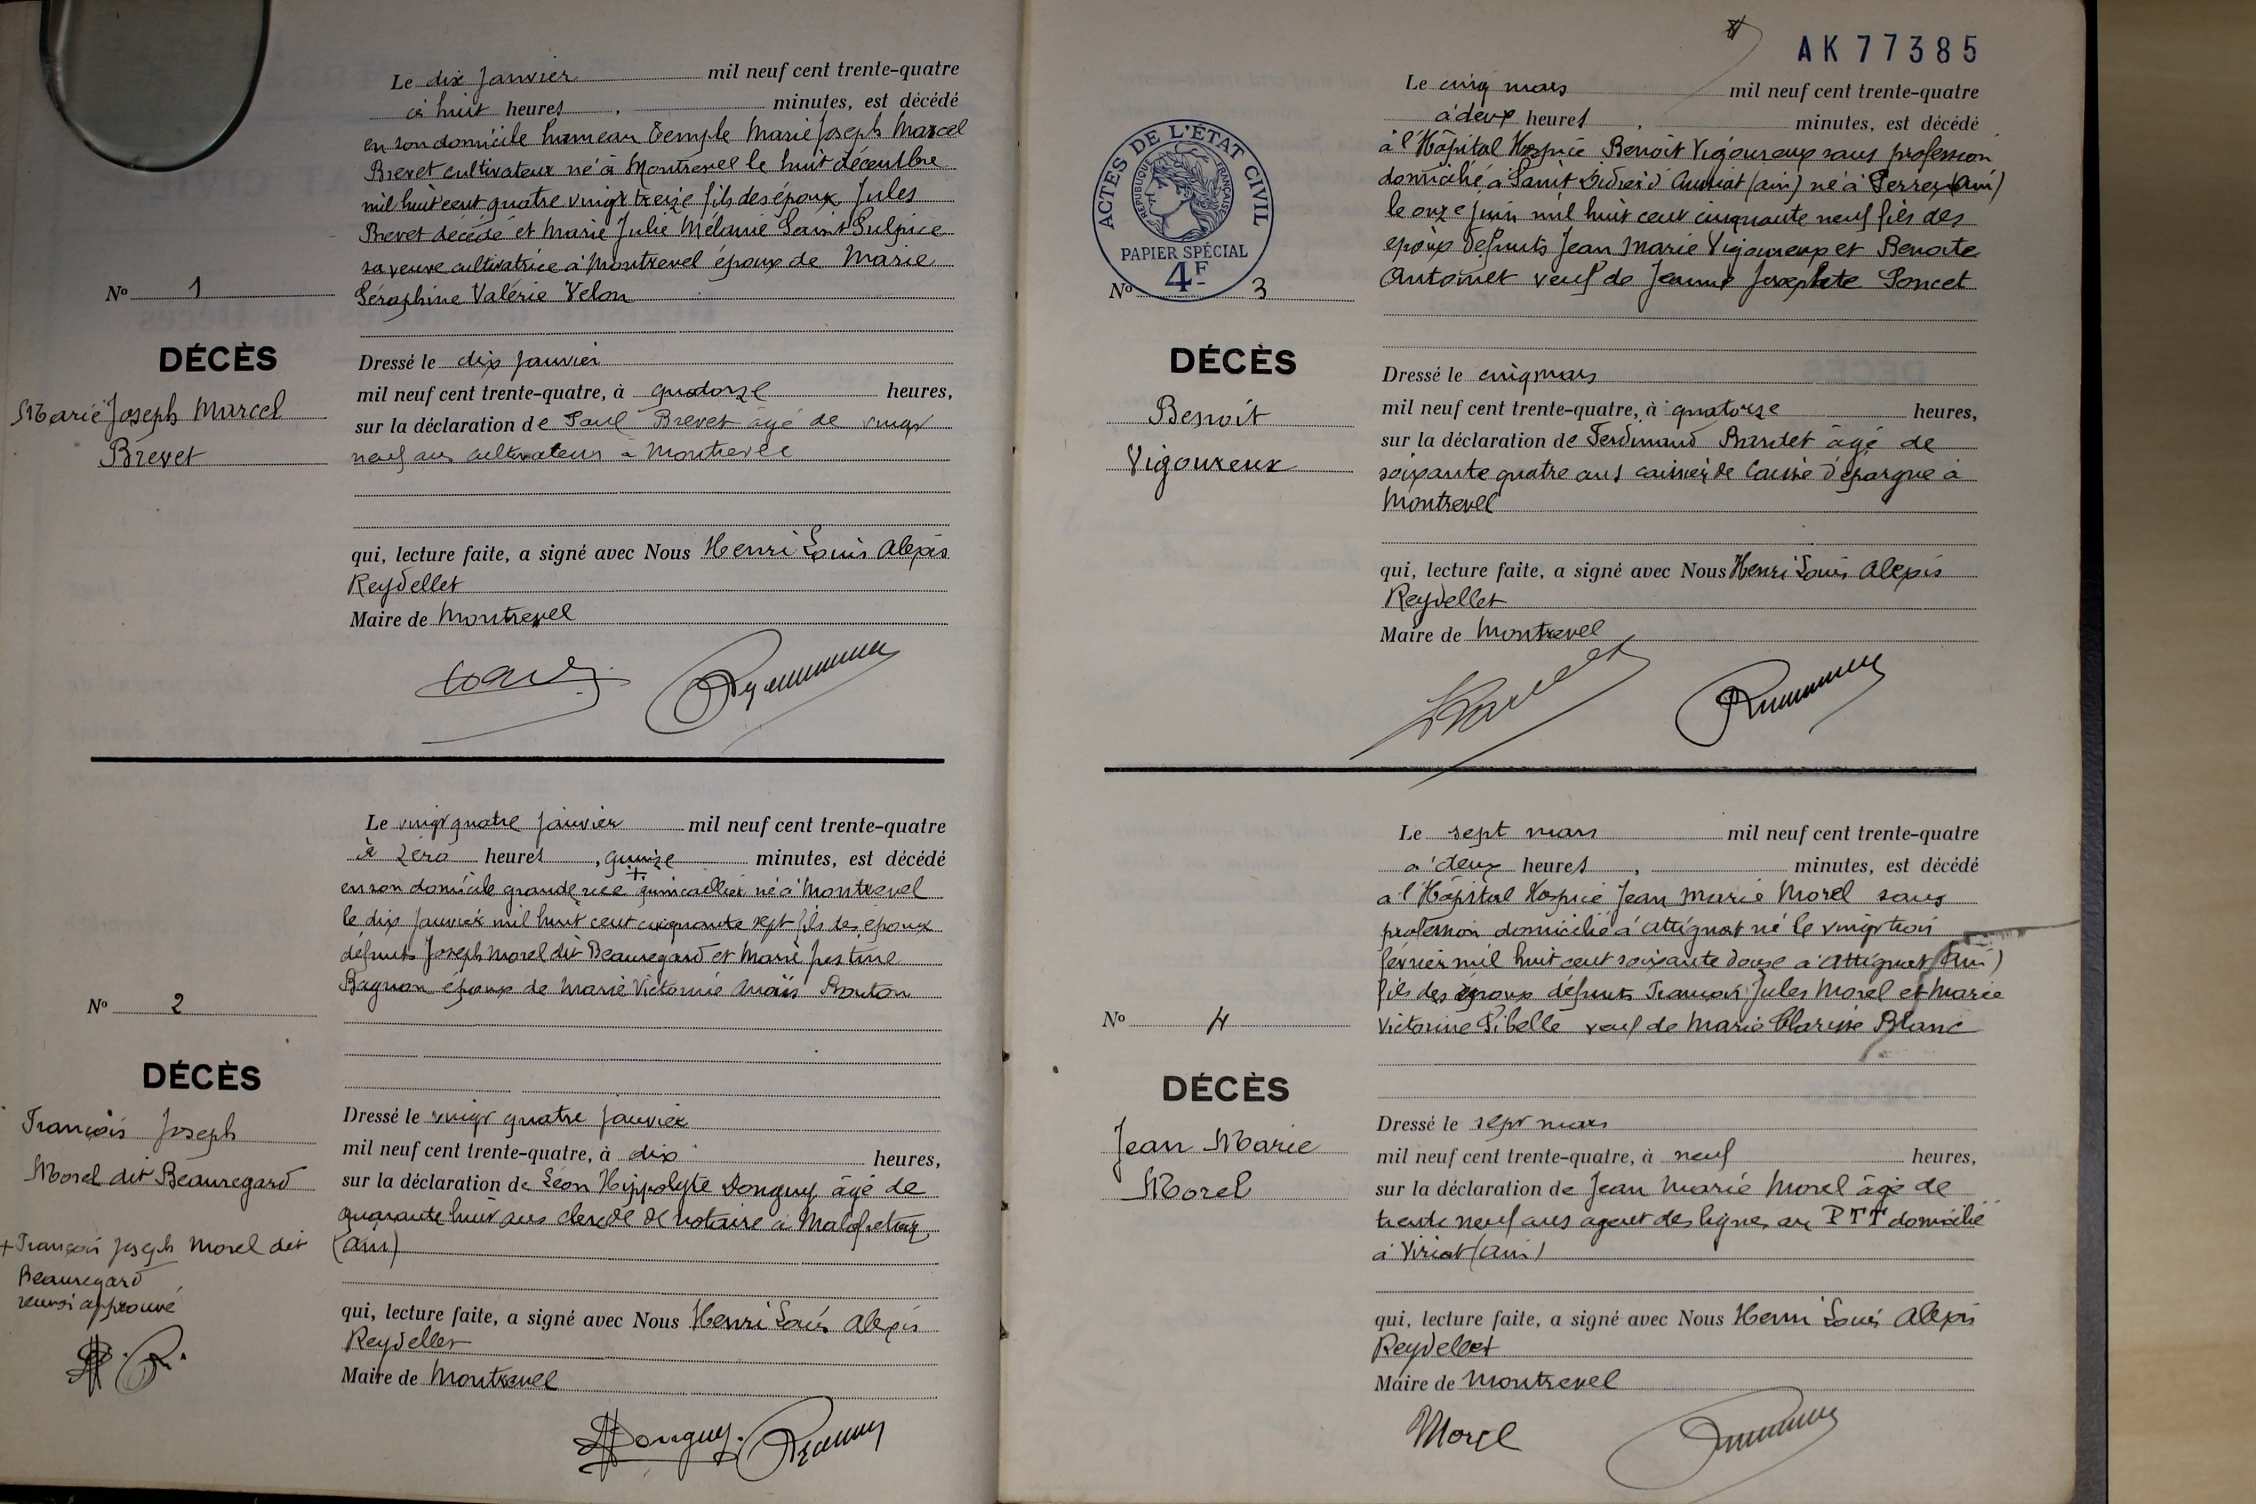 Le dix janvier mil neuf cent trente-quatre
à huit heures, minutes, est décédé
en son domicile hameau Temple Marie Joseph Marcel
Brevet cultivateur né à Montrevel le huit décembre
mil huit cent quatre vingt treize fils des époux Jules
Brevet décédé et Marie Julie Mélanie Saint Sulpice
sa veuve cultivatrice à Montrevel époux de Marie
Séraphine Valérie Velon
No 1
DÉCÈS
Marie Joseph Marcel
Brevet
Dressé le dix janvier
mil neuf cent trente-quatre, à quatorze heures,
sur la déclaration de Paul Brevet âgé de vingt
neuf ans cultivateur à Montrevel
qui, lecture faite, a signé avec Nous Henri Louis Alexis
Reydellet
Maire de Montrevel
Le vingt quatre janvier mil neuf cent trente-quatre
à zéro heures, quinze minutes, est décédé
+
en son domicile grande rue quincaillier né à Montrevel
le dix janvier mil huit cent cinquante sept fils des époux
défunts Joseph Morel dit Beauregard et Marie Justine
Bagnon époux de Marie Victorine Anaïs Bouton
No 2
DÉCÈS
François Joseph
Morel dit Beauregard
+ François Joseph Morel dit
Beauregard
renvoi approuvé
Dressé le vingt quatre janvier
mil neuf cent trente-quatre, à dix heures,
sur la déclaration de Léon Hippolyte Donguy âgé de
quarante huit ans clerc de notaire à Malafretaz
(Ain)
qui, lecture faite, a signé avec Nous Henri Louis Alexis
Reydellet
Maire de Montrevel
Donguy
AK 77385
Le cinq mars mil neuf cent trente-quatre
à deux heures, minutes, est décédé
à l'Hôpital Hospice Benoit Vigoureux sans profession
domicilié à Saint Didier d'Aussiat (ain) né à Perrex (ain)
le onze juin mil huit cent cinquante neuf fils des
époux défunts Jean Marie Vigoureux et Benoite
Antoinet veuf de Jeanne Josephte Poncet
ACTES DE L'ÉTAT CIVIL
RÉPUBLIQUE FRANÇAISE
PAPIER SPÉCIAL
4F
No 3
DÉCÈS
Benoit
Vigoureux
Dressé le cinq mars
mil neuf cent trente-quatre, à quatorze heures,
sur la déclaration de Ferdinand Bardet âgé de
soixante quatre ans caissier de Caisse d'épargne à
Montrevel
qui, lecture faite, a signé avec Nous Henri Louis Alexis
Reydellet
Maire de Montrevel
Le sept mars mil neuf cent trente-quatre
à deux heures, minutes, est décédé
à l'Hôpital Hospice Jean Marie Morel sans
profession domicilié à Attignat né le vingt trois
février mil huit cent soixante douze à Attignat (Ain)
fils des époux défunts François Jules Morel et Marie
Victorine Pibelle veuf de Marie Clarisse Blanc
No 4
DÉCÈS
Jean Marie
Morel
Dressé le sept mars
mil neuf cent trente-quatre, à neuf heures,
sur la déclaration de Jean Marie Morel âgé de
trente neuf ans agent des lignes au PTT domicilié
à Viriat (Ain)
qui, lecture faite, a signé avec Nous Henri Louis Alexis
Reydellet
Maire de Montrevel
Morel